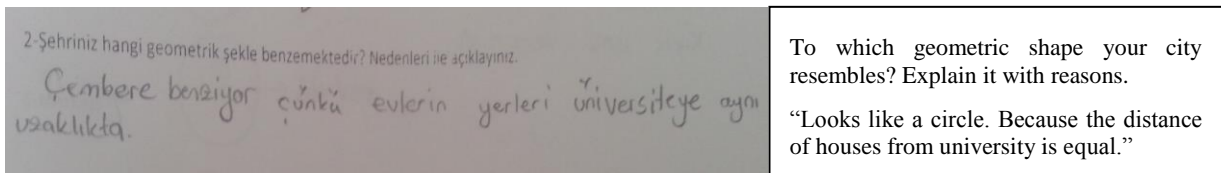 2-Şehriniz hangi geometrik şekle benzemektedir? Nedenleri ile açıklayınız.
Çembere benziyor çünkü evlerin yerleri üniversiteye aynı
uzaklıkta.
To which geometric shape your city
resembles? Explain it with reasons.
“Looks like a circle. Because the distance
of houses from university is equal.”